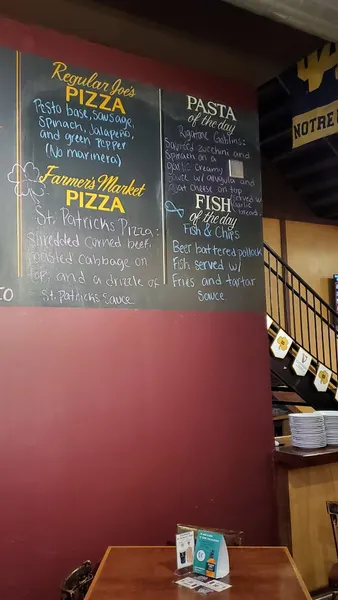 Regular Joe's
PIZZA
Pesto base, sausage,
spinach, Jalapeño,
and green Pepper
(No marinera)
Farmer's Market
PIZZA
St. Patricks Pizza:
shredded corned beef,
roasted cabbage on
top, and a drizzle of
St. Patricks sauce
PASTA
of the day
Rigatoni
Sautéed zucchini and
Spinach on a
garlic creamy
sauce w/ arugula and
goat cheese on top
served w/
garlic
bread
FISH
of the day
Fish & Chips
Beer battered pollock
Fish served w/
Fries and tartar
Sauce
NOTRE